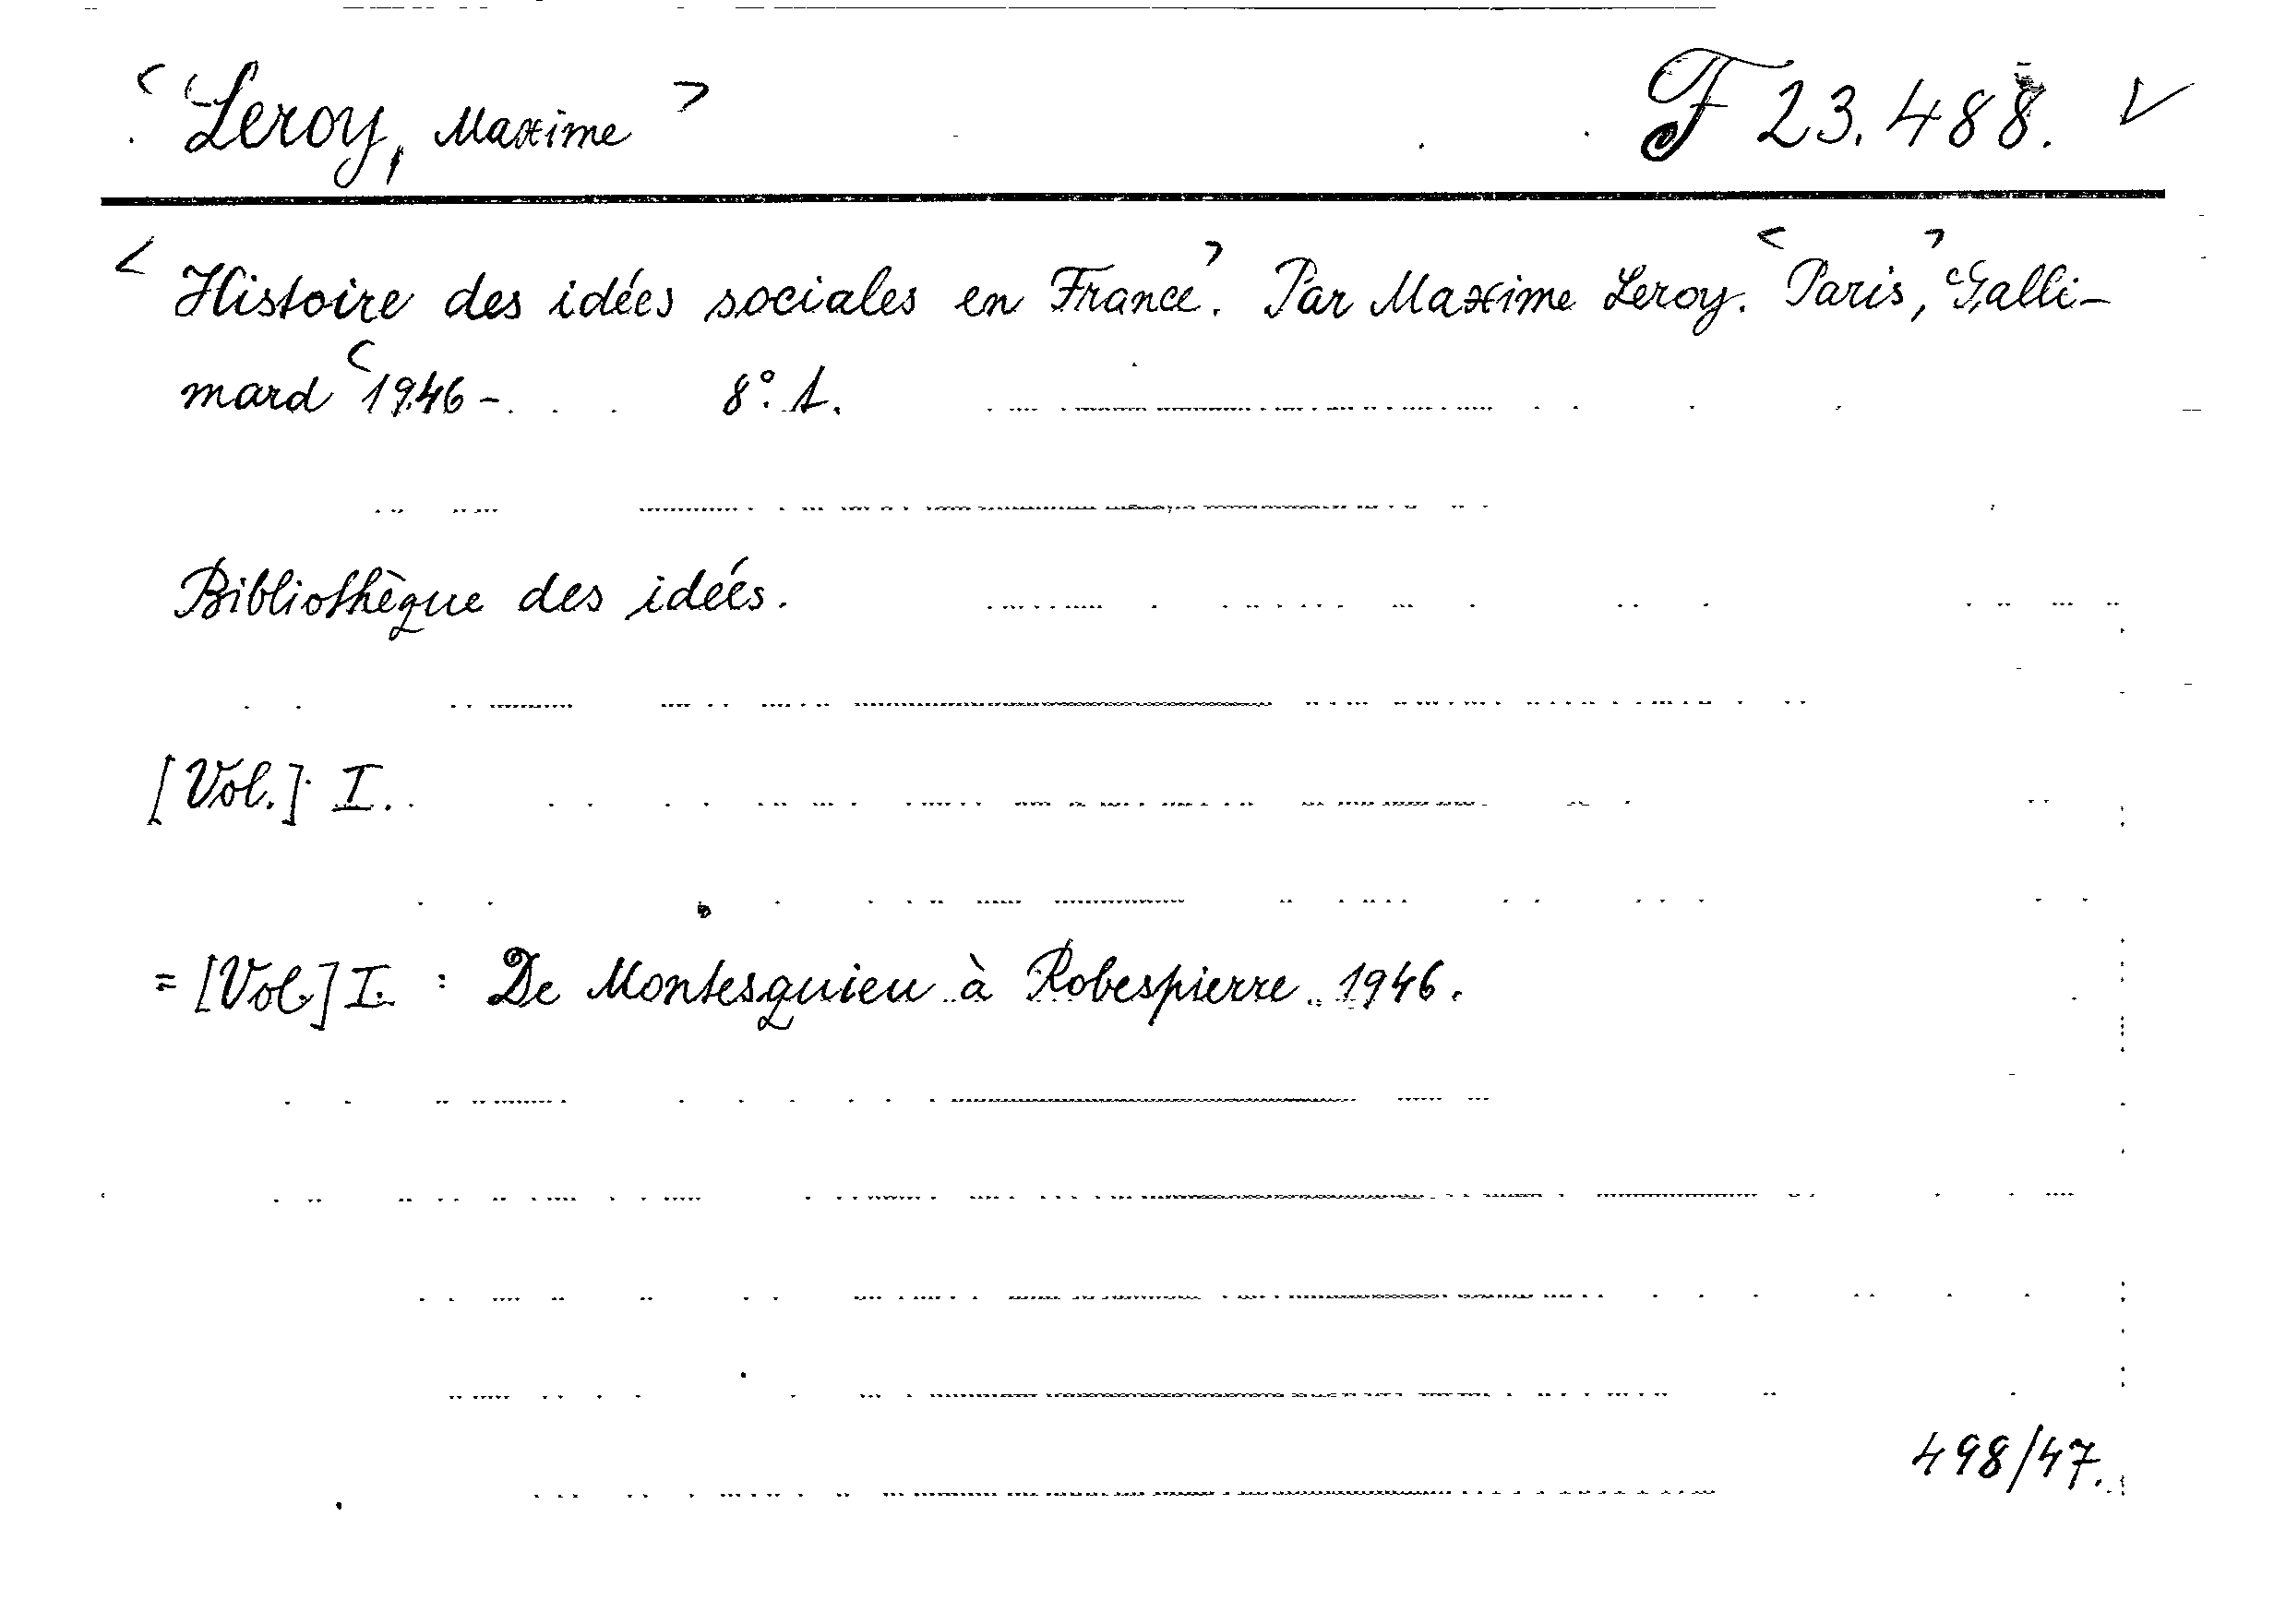 < Leroy, Maxime > F 23.488. ✓
< Histoire des idées sociales en France >. Par Maxime Leroy. < Paris >, Galli-
mard < 1946 -. 8°. 1.
Bibliothèque des idées.
[Vol.] I.
= [Vol.] I. : De Montesquieu à Robespierre. 1946.
498/47.